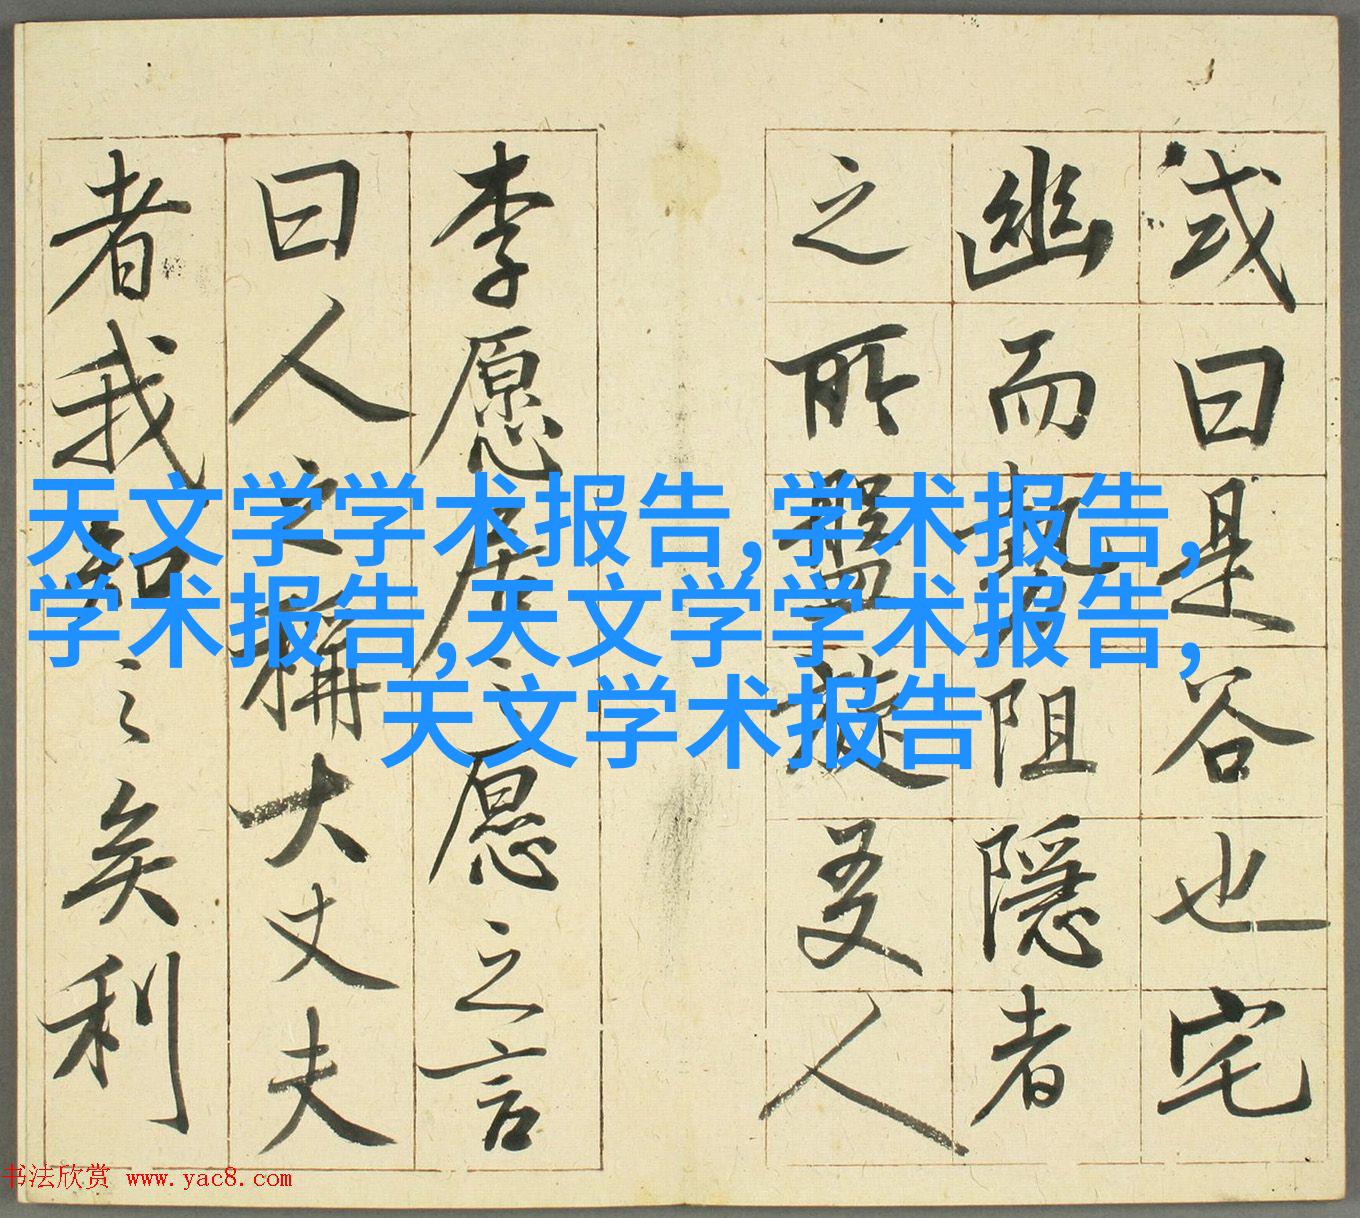 或曰是谷也宅
幽而勢阻隱者
之所盤旋友人
李愿居之愿之言
曰人之稱大丈夫
者我知之矣利
天文学学术报告,学术报告,
学术报告,天文学学术报告,
天文学术报告
书法欣赏 www.yac8.com